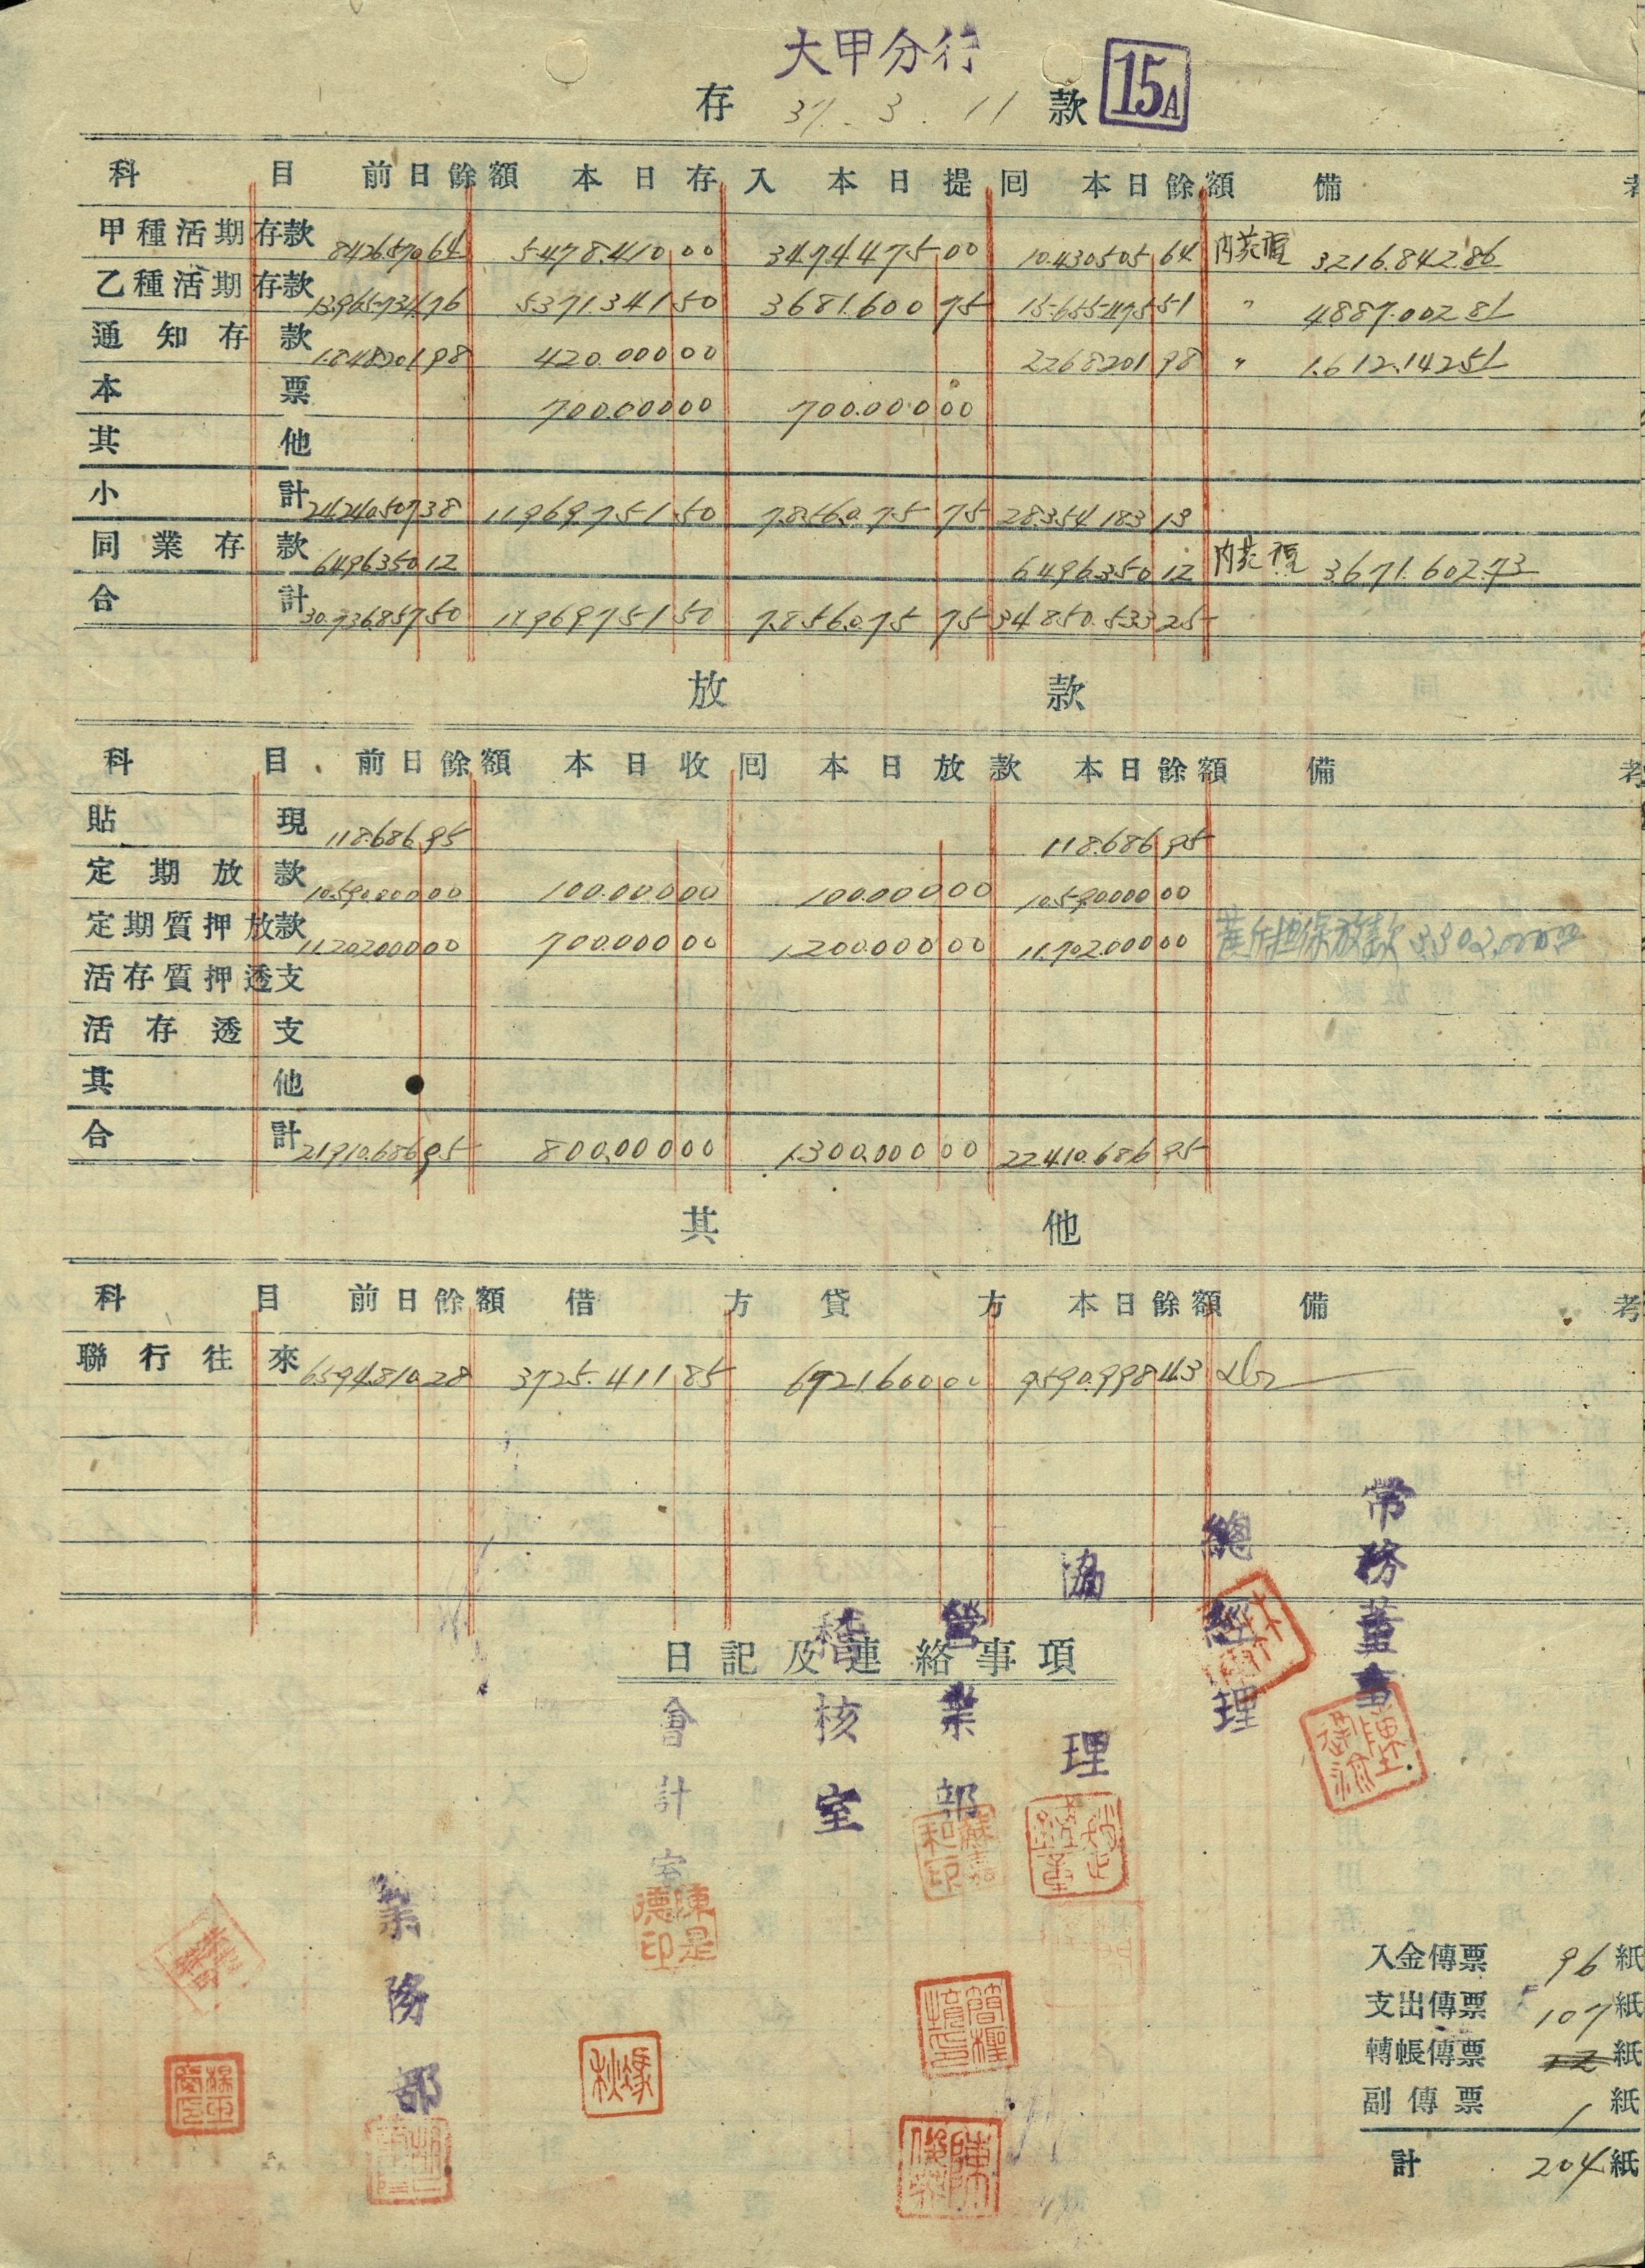 大甲分行
存 37. 3. 11 款 15A
科目 前日餘額 本日存入 本日提囘 本日餘額 備考
甲種活期存款 8426570 64 5.478.410 00 3474475 00 10.430505 64 內 3216.842.86
乙種活期存款 13.965.734 76 5371.341 50 3681.600 75 15.655.475 51 〃 4887.002 81
通知存款 1.848201 98 420.000 00 2268201 98 〃 1.612.142 51
本票 700.000 00 700.000 00
其他
小計 24.240.507 38 11.969.751 50 7.856.075 75 28.354.183 13
同業存款 6496350 12 6496.350 12 內 3671.602.73
合計 30.736.857 50 11.969751 50 7.856.075 75 34.850.533 25
放款
科目 前日餘額 本日收囘 本日放款 本日餘額 備考
貼現 118.686 95 118.686 95
定期放款 10.590.000 00 100.000 00 100.000 00 10.590.000 00
定期質押放款 11.202.000 00 700.000 00 1.200.000 00 11.702.000 00 担保放款
活存質押透支
活存透支
其他
合計 21.910.686 95 800.000 00 1.300.000 00 22.410.686 95
其他
科目 前日餘額 借方 貸方 本日餘額 備考
聯行往來 6.594.810 28 3725.411 85 6721.600 00 9.590.998 43
日記及連絡事項
常務董事
總經理
協理
營業部
稽核室
會計室
業務部
陳是德印
陳
入金傳票 96 紙
支出傳票 107 紙
轉帳傳票 紙
副傳票 1 紙
計 204 紙